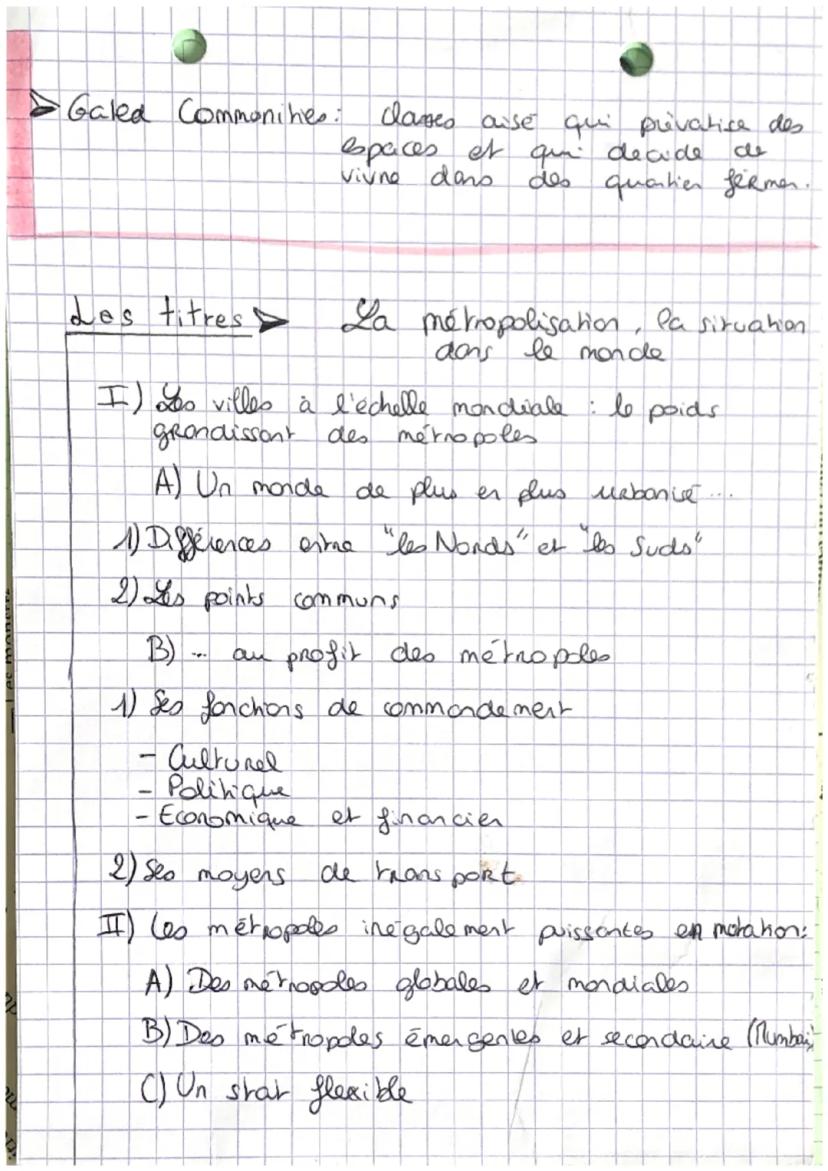 ➤ Gated Communities: classes aisé qui privatise des
espaces et qui decide de
vivre dans des quartier fermer.
Les titres ➤ La métropolisation, la situation
dans le monde
I) Les villes à l'échelle mondiale : le poids
grandissant des métropoles
A) Un monde de plus en plus urbanisé ...
1) Différences entre "les Nords" et "les Suds"
2) Les points communs
B) ... au profit des métropoles
1) Ses fonctions de commandement
- Culturel
- Politique
- Economique et financier
2) Ses moyens de transport
II) Les métropoles inégalement puissantes en mutation:
A) Des métropoles globales et mondiales
B) Des métropoles émergentes et secondaire (Mumbai)
C) Un stat flexible